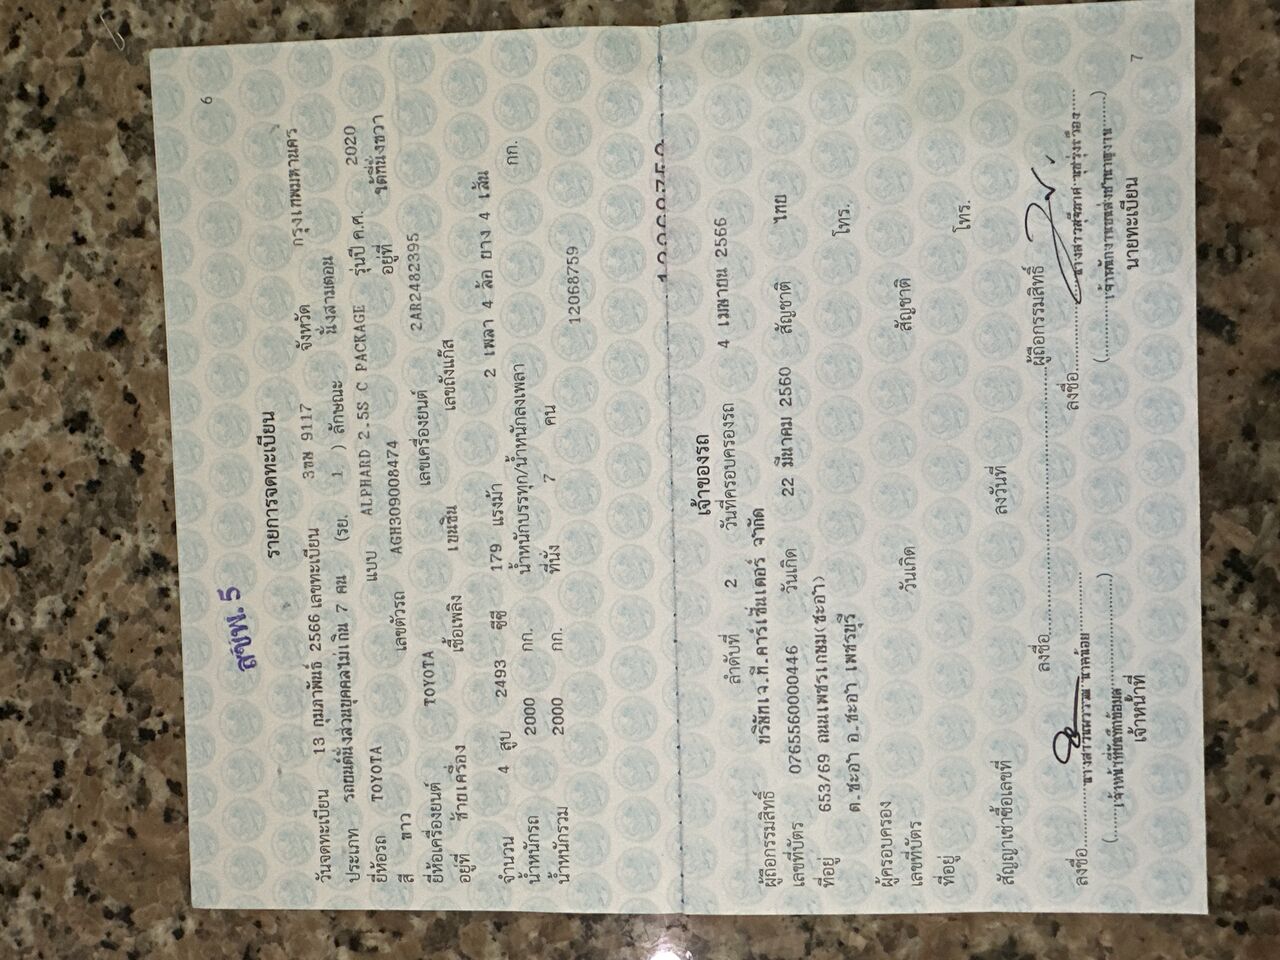 6
สขพ.5
รายการจดทะเบียน
วันจดทะเบียน 13 กุมภาพันธ์ 2566 เลขทะเบียน 3ขฆ 9117 จังหวัด กรุงเทพมหานคร
ประเภท รถยนต์นั่งส่วนบุคคลไม่เกิน 7 คน (รย. 1 ) ลักษณะ นั่งสามตอน
ยี่ห้อรถ TOYOTA แบบ ALPHARD 2.5S C PACKAGE รุ่นปี ค.ศ. 2020
สี ขาว เลขตัวรถ AGH309008474 อยู่ที่ ใต้ที่นั่งขวา
ยี่ห้อเครื่องยนต์ TOYOTA เลขเครื่องยนต์ 2AR2482395
อยู่ที่ ซ้ายเครื่อง เชื้อเพลิง เบนซิน เลขถังแก๊ส
จำนวน 4 สูบ 2493 ซีซี 179 แรงม้า 2 เพลา 4 ล้อ ยาง 4 เส้น
น้ำหนักรถ 2000 กก. น้ำหนักบรรทุก/น้ำหนักลงเพลา กก.
น้ำหนักรวม 2000 กก. ที่นั่ง 7 คน
12068759
เจ้าของรถ
ลำดับที่ 2 วันที่ครอบครองรถ 4 เมษายน 2566
ผู้ถือกรรมสิทธิ์ บริษัทเจ.ที.คาร์เซ็นเตอร์ จำกัด
เลขที่บัตร 0765560000446 วันเกิด 22 มีนาคม 2560 สัญชาติ ไทย
ที่อยู่ 653/69 ถนนเพชรเกษม(ชะอำ)
ต.ชะอำ อ.ชะอำ เพชรบุรี โทร.
ผู้ครอบครอง
เลขที่บัตร วันเกิด สัญชาติ
ที่อยู่
โทร.
สัญญาเช่าซื้อเลขที่ ลงวันที่
ลงชื่อ ผู้ถือกรรมสิทธิ์
ลงชื่อ ลงชื่อ
เจ้าหน้าที่ นายทะเบียน
7